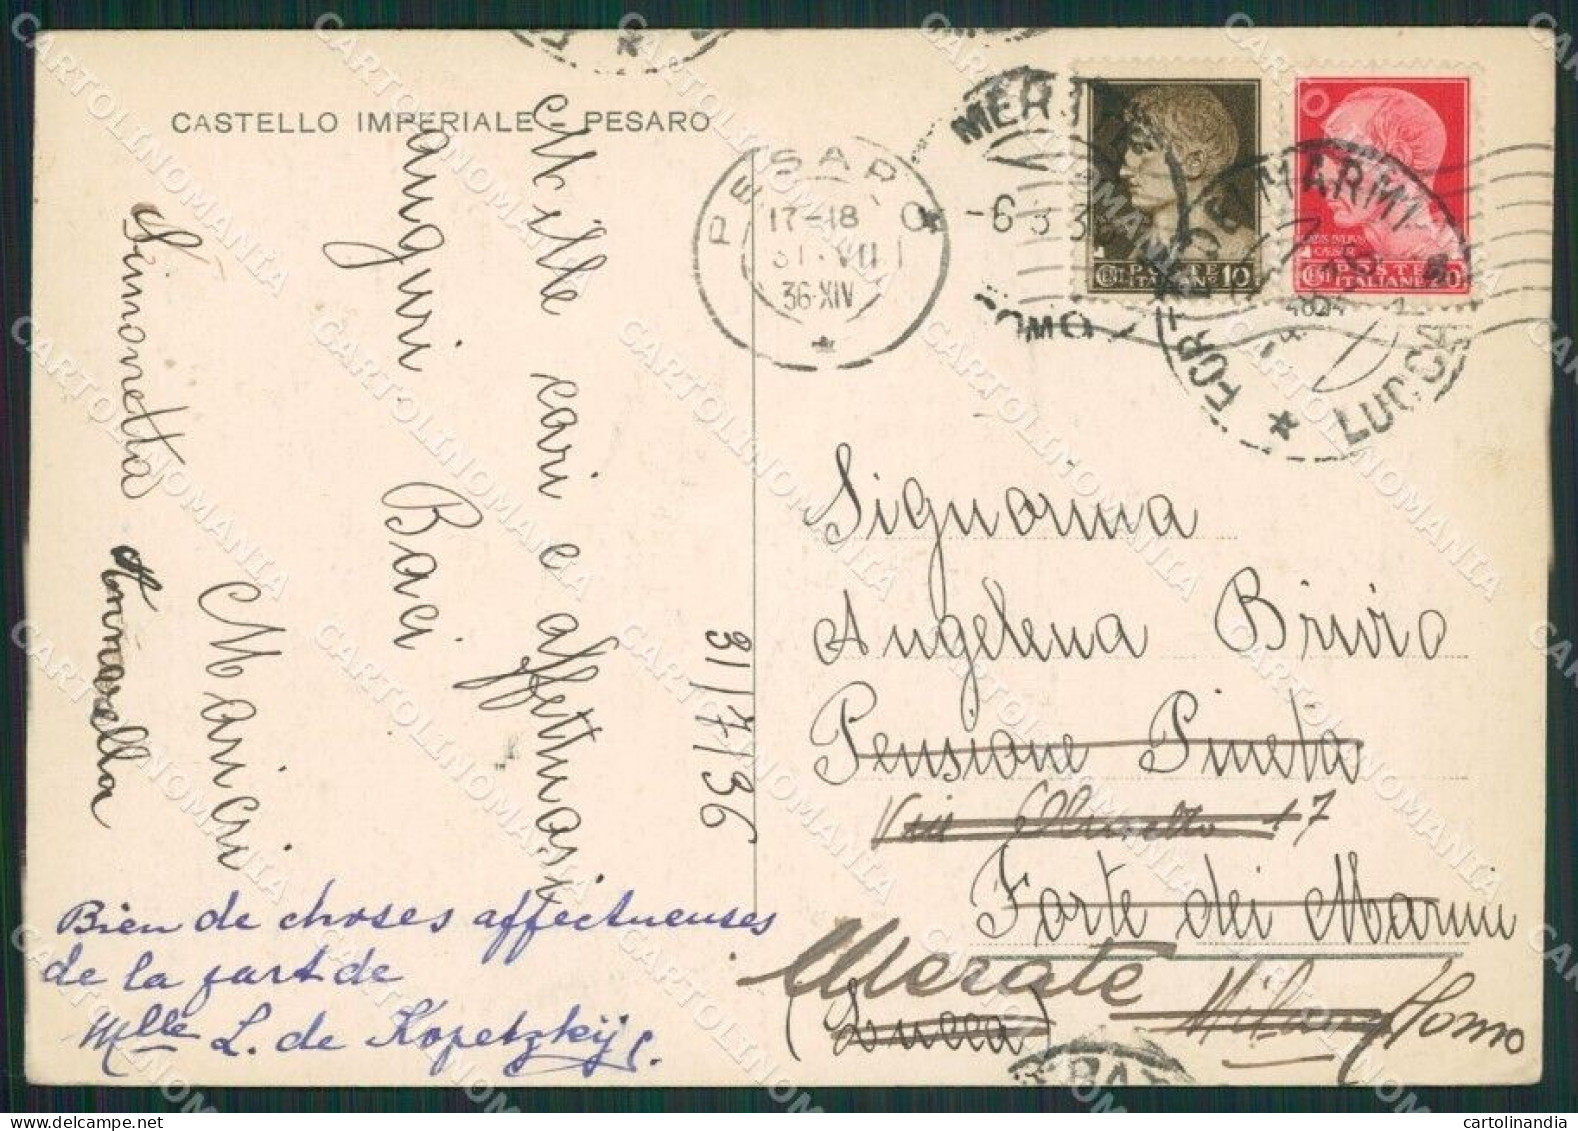 CASTELLO IMPERIALE - PESARO
Mille cari e affettuosi
auguri Baci
Maricri
Simonetta Annarella
31/7/36
Bien de choses affectueuses
de la part de
Mlle L. de Kopetzkÿ
PESARO
17-18
31 VII
36·XIV
MERATE
-6 8 3
COMO
FORTE DEI MARMI
LUCCA
POSTE
ITALIANE
10
POSTE
ITALIANE
Signorina
Angelena Brivio
Pensione Pineta
Via 17
Forte dei Marmi
Merate
(Lucca)
Milano
Como
CARTOLINOMANIA
cartolinandia